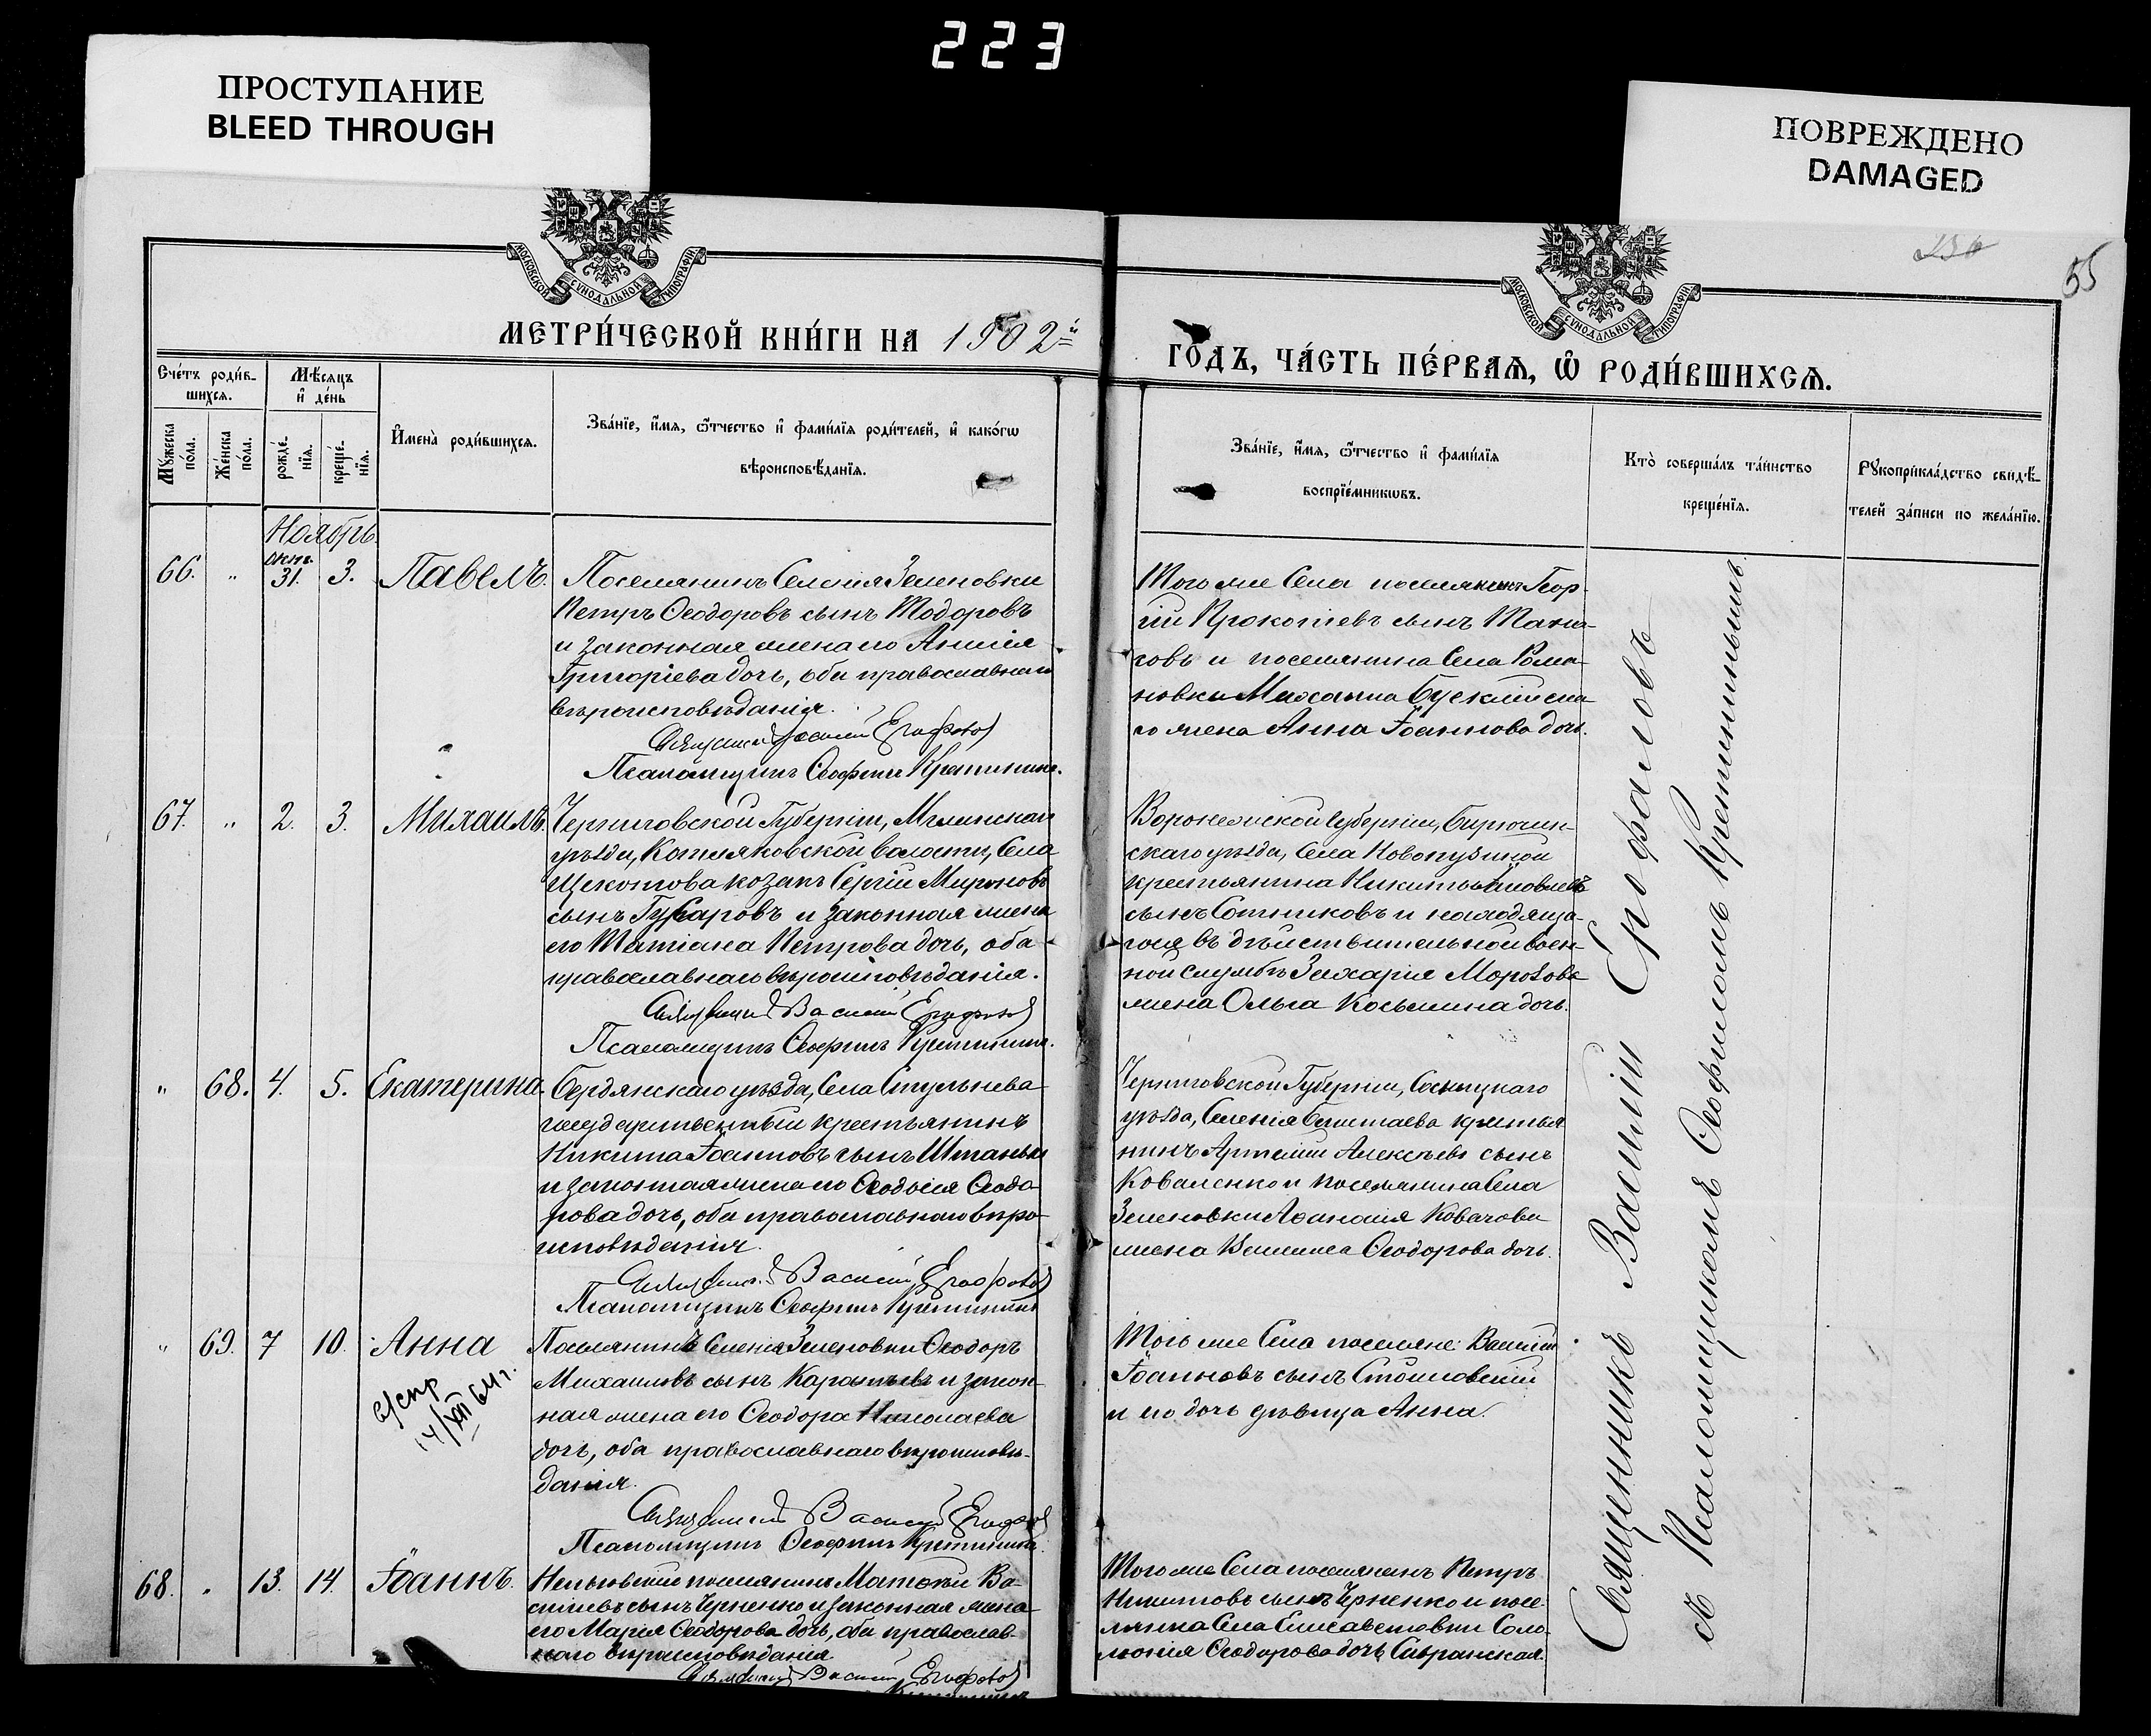 223
ПРОСТУПАНИЕ
BLEED THROUGH
ПОВРЕЖДЕНО
DAMAGED
МОСКОВСКОЙ СУНОДАЛЬНОЙ ТИПОГРАФІИ
МОСКОВСКОЙ СУНОДАЛЬНОЙ ТИПОГРАФІИ
55
МЕТРИ́ЧЕСКОЙ КНИ́ГИ НА 1902й
ГО́ДЪ, ЧА́СТЬ ПЕ́РВАѦ, Ѡ҆ РОДИ́ВШИХСѦ.
Сче́тъ роди́в-
шихсѧ.
Мѣ́сѧцъ
и҆ де́нь
Мꙋ́жеска
по́ла.
Же́нска
по́ла.
рожде́-
нїѧ.
креще́-
нїѧ.
И҆мена̀ роди́вшихсѧ.
Зва́нїе, и҆́мѧ, ѻ҆́тчество и҆ фами́лїѧ роди́телей, и҆ како́гѡ
вѣроисповѣ́данїѧ.
Зва́нїе, и҆́мѧ, ѻ҆́тчество и҆ фами́лїѧ
воспрїе́мникѡвъ.
Кто̀ соверша́лъ та́инство
креще́нїѧ.
Рꙋкоприкла́дство свидѣ́-
телей за́писи по жела́нїю.
Ноябрь.
66. " Окт. 31. 3. Павелъ.
Поселянинъ Селенія Зеленовки
Петръ Ѳеодоровъ сынъ Тодоровъ
и законная жена его Анисія
Григоріева дочь, оба православнаго
вѣроисповѣданія.
Священникъ Василій Ерофаловъ
Псаломщикъ Ѳеофилъ Кретининъ.
Того же Села поселянинъ Геор-
гій Прокопіевъ сынъ Тана-
совъ и поселянина Села Рома-
новки Михаила
жена Анна Іоаннова дочь.
67. " 2. 3. Михаилъ.
Черниговской Губерніи, Мглинскаго
уѣзда, Котляковской волости, Села
Щекотова козакъ Сергій Мироновъ
сынъ Гусаровъ и законная жена
его Татіана Петрова дочь, оба
православнаго вѣроисповѣданія.
Священникъ Василій Ерофаловъ
Псаломщикъ Ѳеофилъ Кретининъ.
Воронежской Губерніи, Бирючин-
скаго уѣзда, Села
крестьянина Никиты
сынъ Сотниковъ и находяща-
гося въ дѣйствительной воен-
ной службѣ Захарія Морозова
жена Ольга Косьмина дочь.
" 68. 4. 5. Екатерина.
Бердянскаго уѣзда, Села Стульнева
государственный крестьянинъ
Никита Іоанновъ сынъ Штанько
и законная жена его Ѳеодосія Ѳеодо-
рова дочь, оба православнаго вѣро-
исповѣданія.
Священникъ Василій Ерофаловъ
Псаломщикъ Ѳеофилъ Кретининъ
Черниговской Губерніи, Сосницкаго
уѣзда, Селенія крестья-
нинъ Артемій Алексѣевъ сынъ
Коваленко и поселянина Села
Зеленовки Аѳанасія Ковачова
жена Ѳеодорова дочь.
" 69. 7 10. Анна
с/спр
14/XII 64г.
Поселянинъ Селенія Зеленовки Ѳеодоръ
Михаиловъ сынъ и закон-
ная жена его Ѳеодора Николаева
дочь, оба православнаго вѣроисповѣ-
данія.
Священникъ Василій Ерофаловъ
Псаломщикъ Ѳеофилъ Кретининъ.
Того же Села поселяне: Василій
Іоанновъ сынъ Стоиловскій
и его дочь дѣвица Анна.
68. " 13. 14. Іоаннъ.
поселянинъ Матѳей Ва-
силіевъ сынъ Черненко и законная жена
его Марія Ѳеодорова дочь, оба православ-
наго вѣроисповѣданія.
Священникъ Василій Ерофаловъ
Того же Села поселянинъ Петръ
Никитовъ сынъ Черненко и посе-
лянка Села Елисаветовки Соло-
монія Ѳеодорова дочь
Священникъ Василій Ерофаловъ
съ Псаломщикомъ Ѳеофиломъ Кретининымъ.